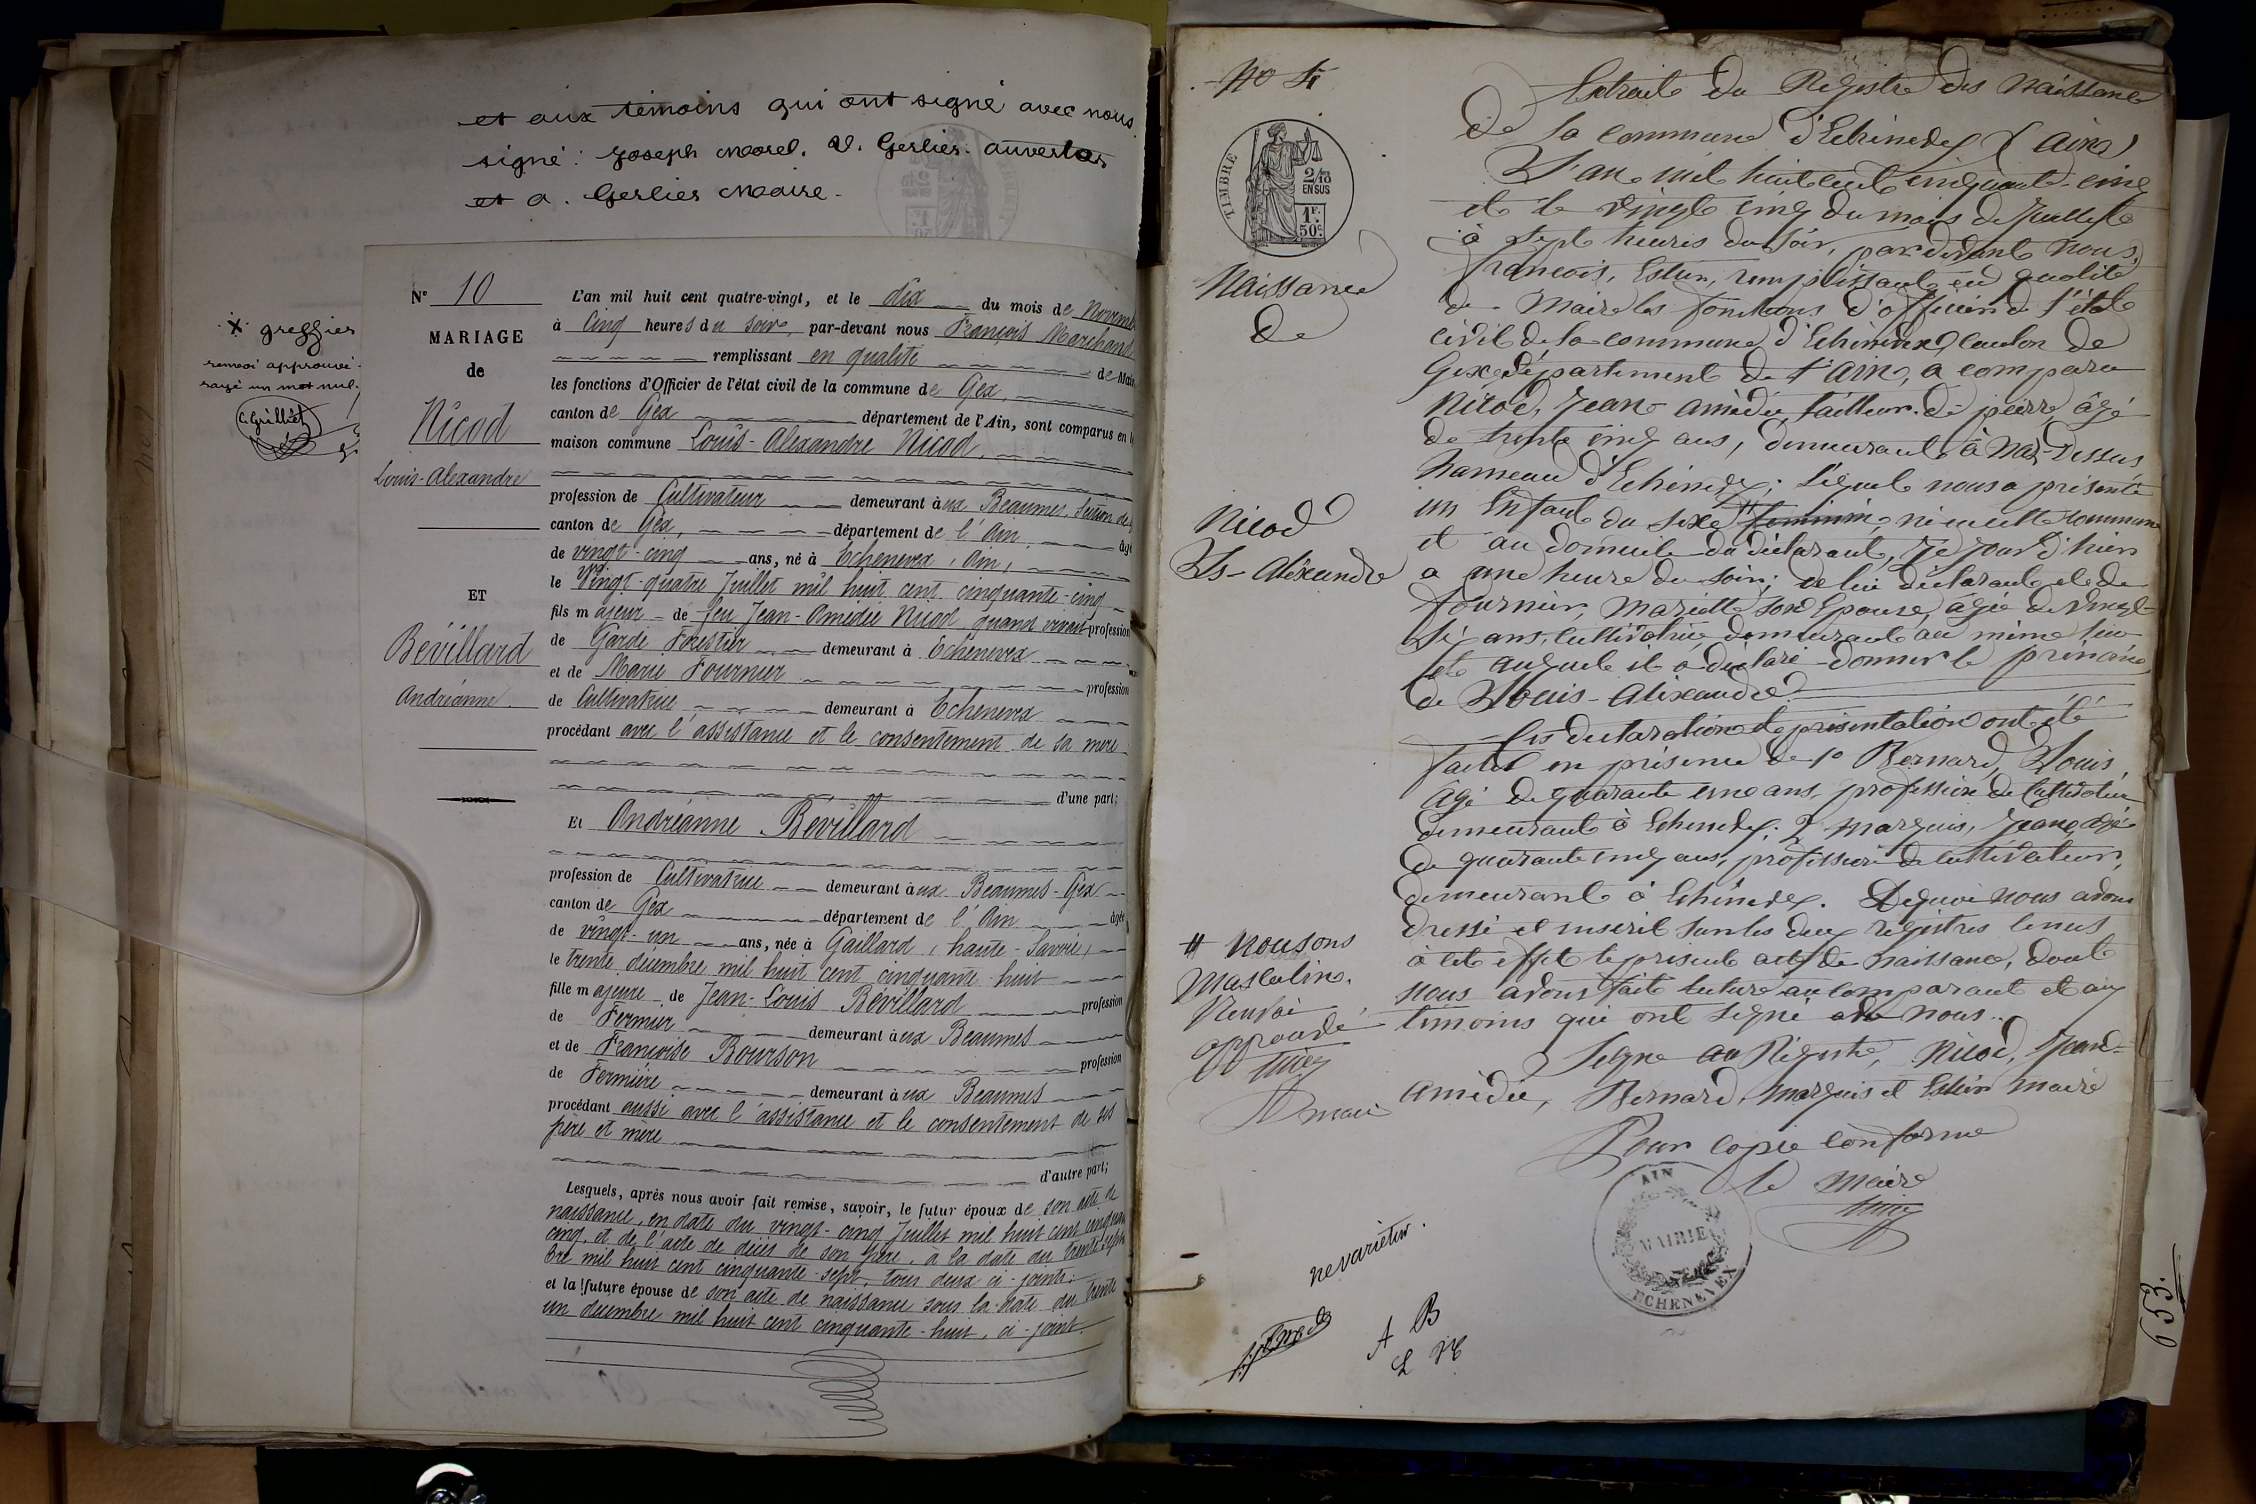 et aux témoins qui ont signé avec nous.
signé : Joseph Morel. V. Gerlier.
et a. Gerlier Maire.
X greffier
renvoi approuvé
rayé un mot nul.
C. Grilliet
N° 10
MARIAGE
de
Nicod
Louis-Alexandre
ET
Bévillard
Andréanne.
L'an mil huit cent quatre-vingt, et le dix du mois de Novembre
à Cinq heures du soir, par-devant nous François Marchand
remplissant en qualité de Maire
les fonctions d'Officier de l'état civil de la commune de Gex,
canton de Gex département de l'Ain, sont comparus en la
maison commune Louis-Alexandre Nicod,
profession de Cultivateur demeurant à ux Beaumes, Section de
canton de Gex, département de l'Ain, âgé
de vingt-cinq ans, né à Echenevex, Ain,
le Vingt-quatre Juillet mil huit cent cinquante-cinq
fils majeur de feu Jean-Amédée Nicod quand vivait profession
de Garde Forestier demeurant à Echenevex
et de Marie Fournier profession
de Cultivatrice demeurant à Echenevex
procédant avec l'assistance et le consentement de sa mère
d'une part;
Et Andréanne Bévillard
profession de Cultivatrice demeurant à ux Beaumes-Gex
canton de Gex département de l'Ain âgée
de vingt-un ans, née à Gaillard, haute-Savoie,
le trente décembre mil huit cent cinquante-huit
fille majeure de Jean-Louis Bévillard profession
de Fermier demeurant à ux Beaumes
et de Françoise Bourson profession
de Fermière demeurant à ux Beaumes
procédant aussi avec l'assistance et le consentement de ses
père et mère
d'autre part;
Lesquels, après nous avoir fait remise, savoir, le futur époux de son acte de
naissance, en date du vingt-cinq Juillet mil huit cent cinquante
cinq, et de l'acte de décès de son père, à la date du trente septem
bre mil huit cent cinquante-sept, tous deux ci-joints.
et la future épouse de son acte de naissance sous la date du trente
un décembre mil huit cent cinquante-huit, ci-joint.
TIMBRE
2/10
EN SUS
1F.
50c.
Naissance
De
Nicod
Ls-Alexandre
# Nous ons
Masculin.
Renvoi
approuvé
maire
Extrait du Registre des Naissances
De la commune d'Echenevex (Ain)
L'an mil huit cent cinquante-cinq
et le vingt cinq du mois de Juillet
à sept heures du soir, par devant nous
François, Estier, remplissant en qualité
de Maire les fonctions d'officier de l'état
civil de la commune d'Echenevex, canton de
Gex, département de l'Ain, a comparu
Nicod, Jean Amédée, tailleur de pierre, âgé
de trente cinq ans, demeurant à Naz-Dessus
hameau d'Echenevex; lequel nous a présenté
un Enfant du sexe # féminin, né en cette commune
et au domicile du déclarant, le jour d'hier
a une heure du soir; de lui déclarant et de
Fournier, Mariette son Epouse, âgée de vingt
six ans, cultivatrice demeurant au même lieu
et auquel il a déclaré donner le prénom
de Louis-Alexandre.
Ces déclaration et présentation ont été
faites en présence de 1° Bernard, Louis
âgé de quarante cinq ans, profession de Cultivateur
demeurant à Echenevex; 2° Marquis, Jean, âgé
de quarante cinq ans, profession de cultivateur,
demeurant à Echenevex. De quoi nous avons
dressé et inscrit sur les deux registres tenus
à cet effet le présent acte de naissance, dont
nous avons fait lecture au comparant et aux
témoins qui ont signé avec nous.
Signé au Registre, Nicod, Jean-
Amédée, Bernard, Marquis et Estier maire
Pour copie conforme
le Maire
AIN
MAIRIE
ECHENEVEX
ne varietur.
A B
L N
653.